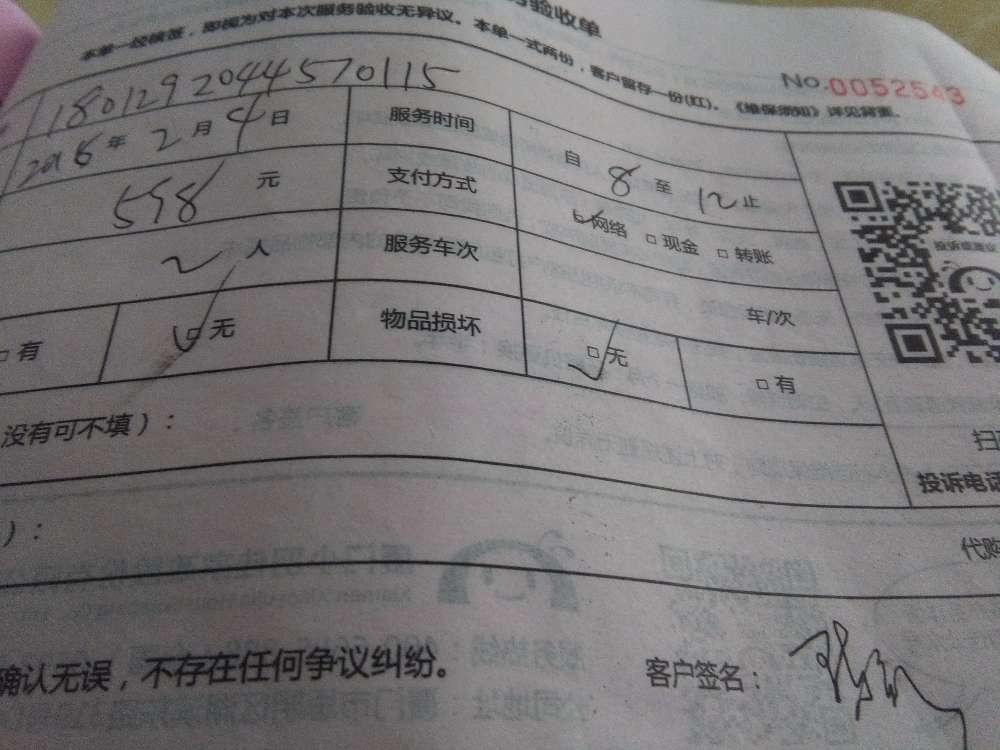 验收单
本单一经被签，即视为对本次服务验收无异议。本单一式两份，客户留存一份(红)。《维保须知》详见背面。
No.0052543
180129204457 0115
年 2 月 4 日 服务时间 自 8 至 12 止
598 元 支付方式 网络 现金 转账
2 人 服务车次 车/次
有 无 物品损坏 无 有
没有可不填）：
扫
投诉电话
）：
代购
确认无误，不存在任何争议纠纷。 客户签名：